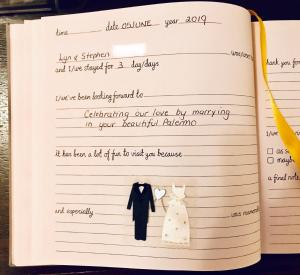 time date 05JUNE year 2019
Lyn & Stephen
and I/we stayed for 3 day/days
I/we've been looking forward to
Celebrating our love by marrying
in your beautiful Palermo
it has been a lot of fun to visit you because
and especially was
thank you for
as
maybe
a final note